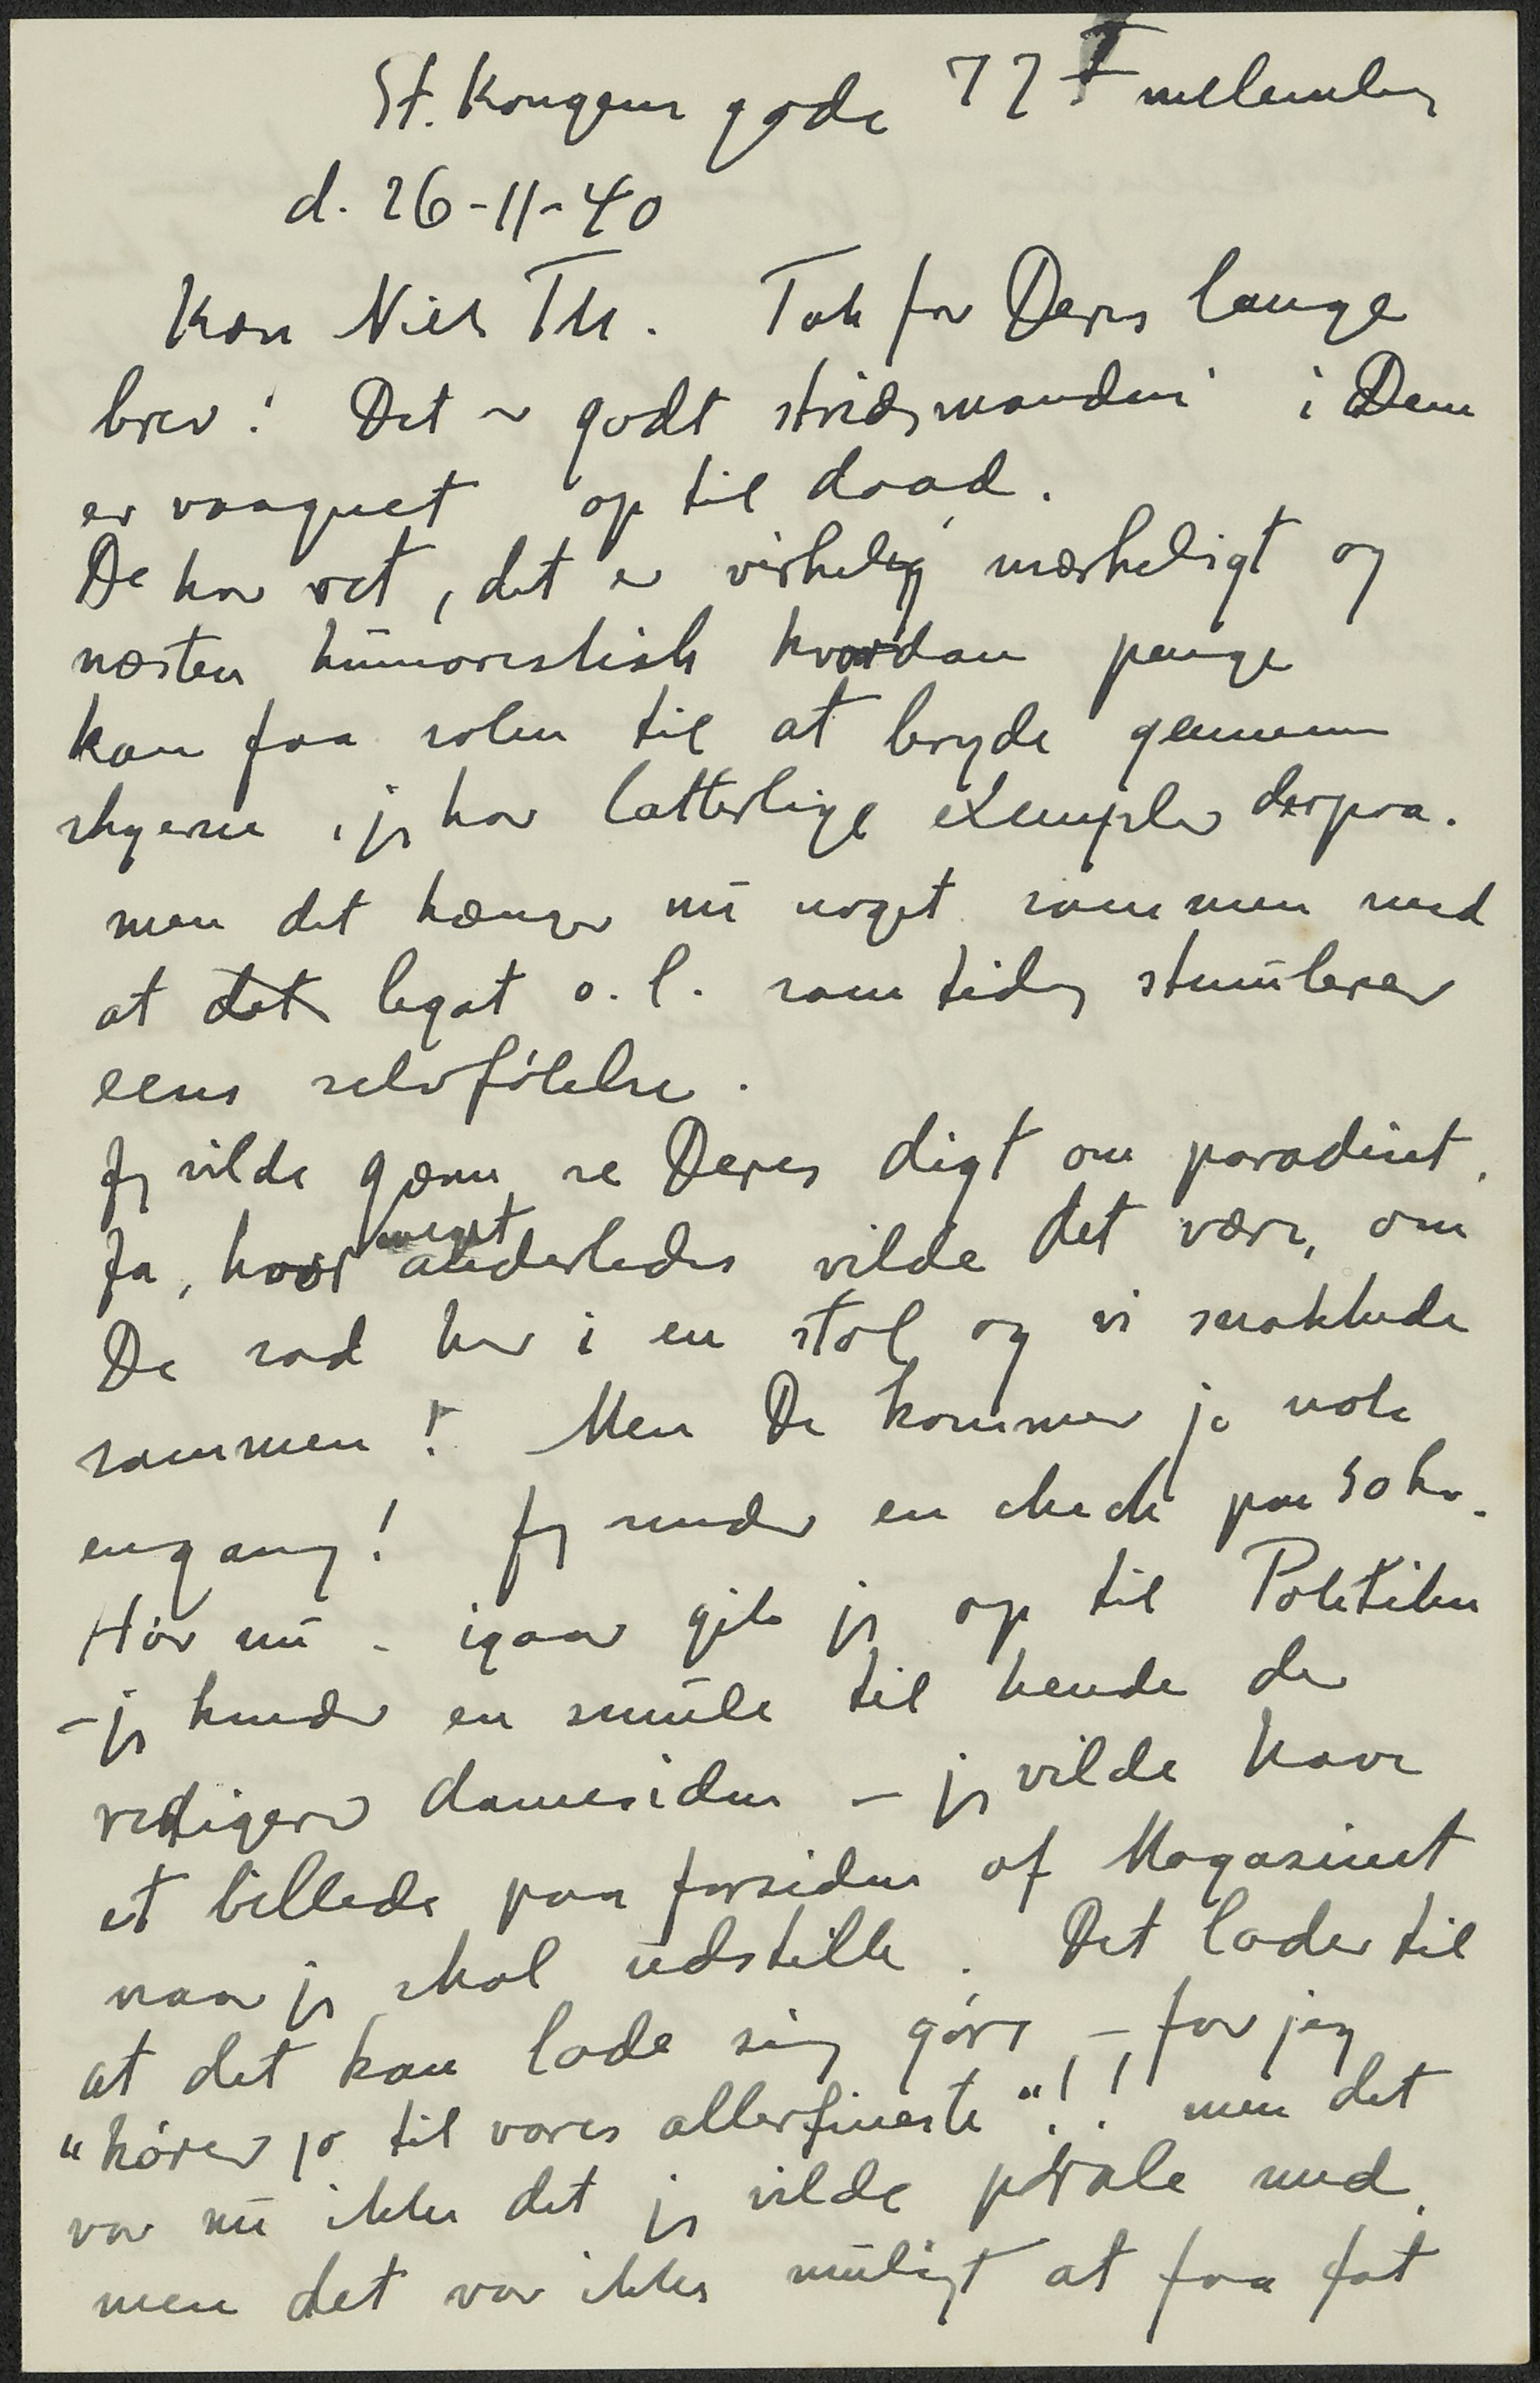 St. Kongens gade 77 F mellembg
d. 26-11-40
Kære Niels Th. Tak for Deres lange
brev! Det er godt stridsmanden i Dem
er vaagnet op til daad.
De har ret, det er virkelig mærkeligt og
næsten humoristisk hvordan penge
kan faa solen til at bryde gennem
skyerne, jeg har latterlige exempler derpaa.
men det hænger nu noget sammen med
at det legat o.l. samtidig stimulerer
eens selvfølelse.
Jeg vilde gærne se Deres digt om paradiset.
Ja, hvor meget anderledes vilde det være, om
De sad her i en stol og vi snakkede
sammen! Men De kommer jo nok
engang! Jeg sender en check paa 50 kr.
Hør nu - igaar gik jeg op til Politiken
- jeg kender en smule til hende der
redigerer damesiden - jeg vilde have
et billede paa forsiden af Magasinet
naar jeg skal udstille. Det lader til
at det kan lade sig gøre - for jeg
"hører jo til vores allerfineste"!! men det
var nu ikke det jeg vilde prale med,
men det var ikke muligt at faa fat